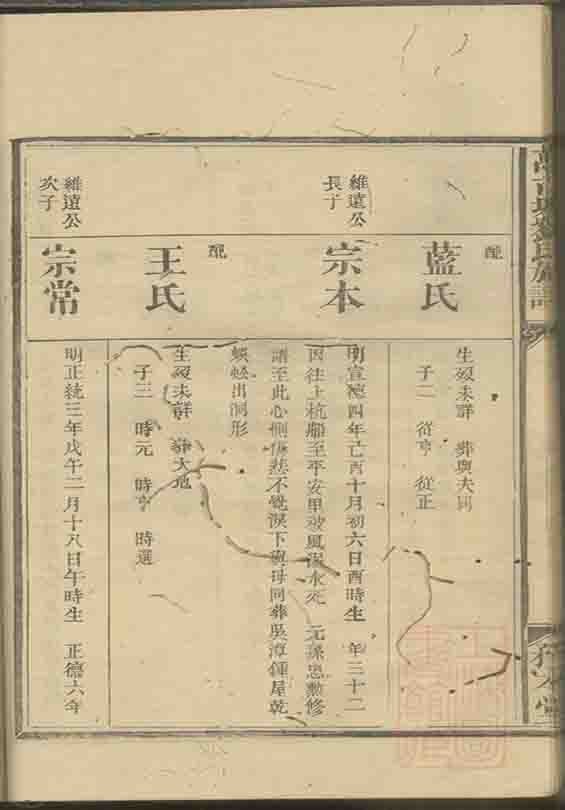 配
藍氏
生歿未詳 葬與夫同
子二 從亨 從正
維遠公
長子
宗本
明宣德四年己酉十月初六日酉時生 年三十二
因往上杭船至平安里被風溺水死 元孫忠勳修
譜至此心惻悲不覺淚下與母同葬吳漳鍾屋乾
蜈蚣出洞形
配
王氏
生歿未詳 葬大地
子三 時元 時亨 時選
維遠公
次子
宗常
明正統三年戊午二月十八日午時生 正德六年